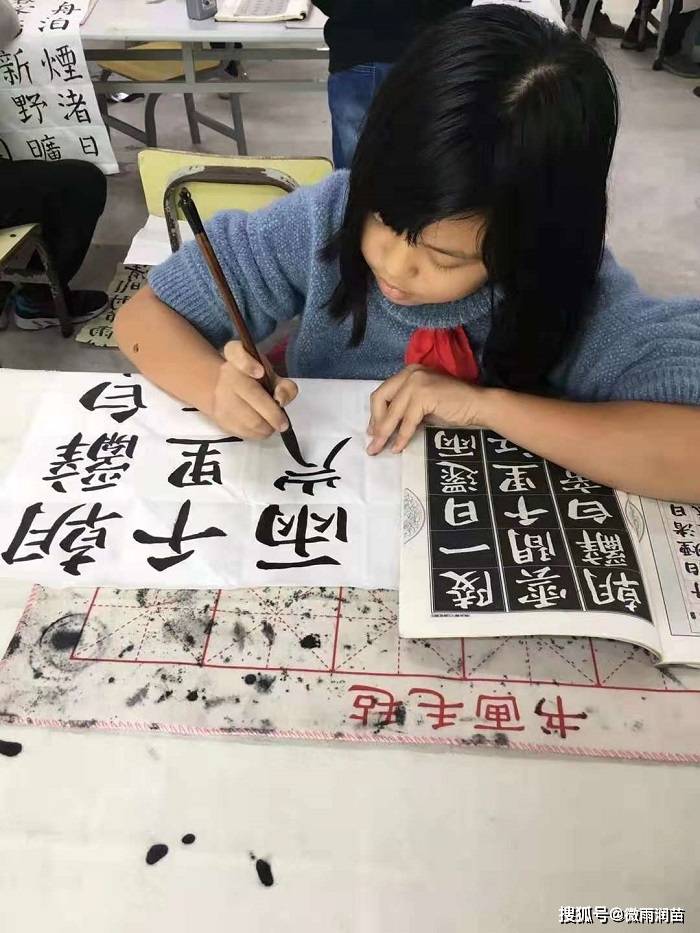 舟泊煙渚日
新野曠
朝辭白
千里
兩
朝辭白帝
雲間千里江
陵一日還兩
书画毛毡
搜狐号@微雨润苗